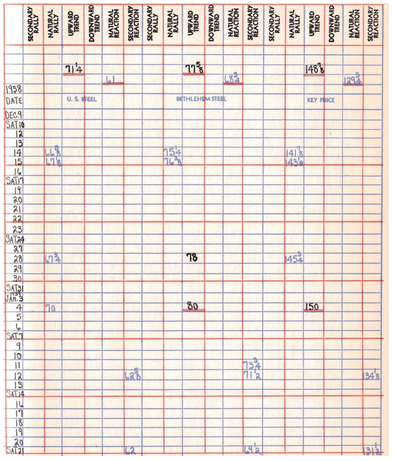 SECONDARY RALLY NATURAL RALLY UPWARD TREND DOWNWARD TREND NATURAL REACTION SECONDARY REACTION SECONDARY RALLY NATURAL RALLY UPWARD TREND DOWNWARD TREND NATURAL REACTION SECONDARY REACTION SECONDARY RALLY NATURAL RALLY UPWARD TREND DOWNWARD TREND NATURAL REACTION SECONDARY REACTION
71¼ 77⅝ 148⅞
61 68¾ 129¾
1938
DATE U. S. STEEL BETHLEHEM STEEL KEY PRICE
DEC.9
SAT.10
12
13
14 66⅝ 75¼ 141⅞
15 67⅛ 76⅜ 143½
16
SAT.17
19
20
21
22
23
SAT.24
27
28 67¾ 78 145¾
29
30
SAT.31
1939
JAN.3
4 70 80 150
5
6
SAT.7
9
10
11 73¾
12 62⅝ 71½ 134⅛
13
SAT.14
16
17
18
19
20
SAT.21 62 69½ 131½